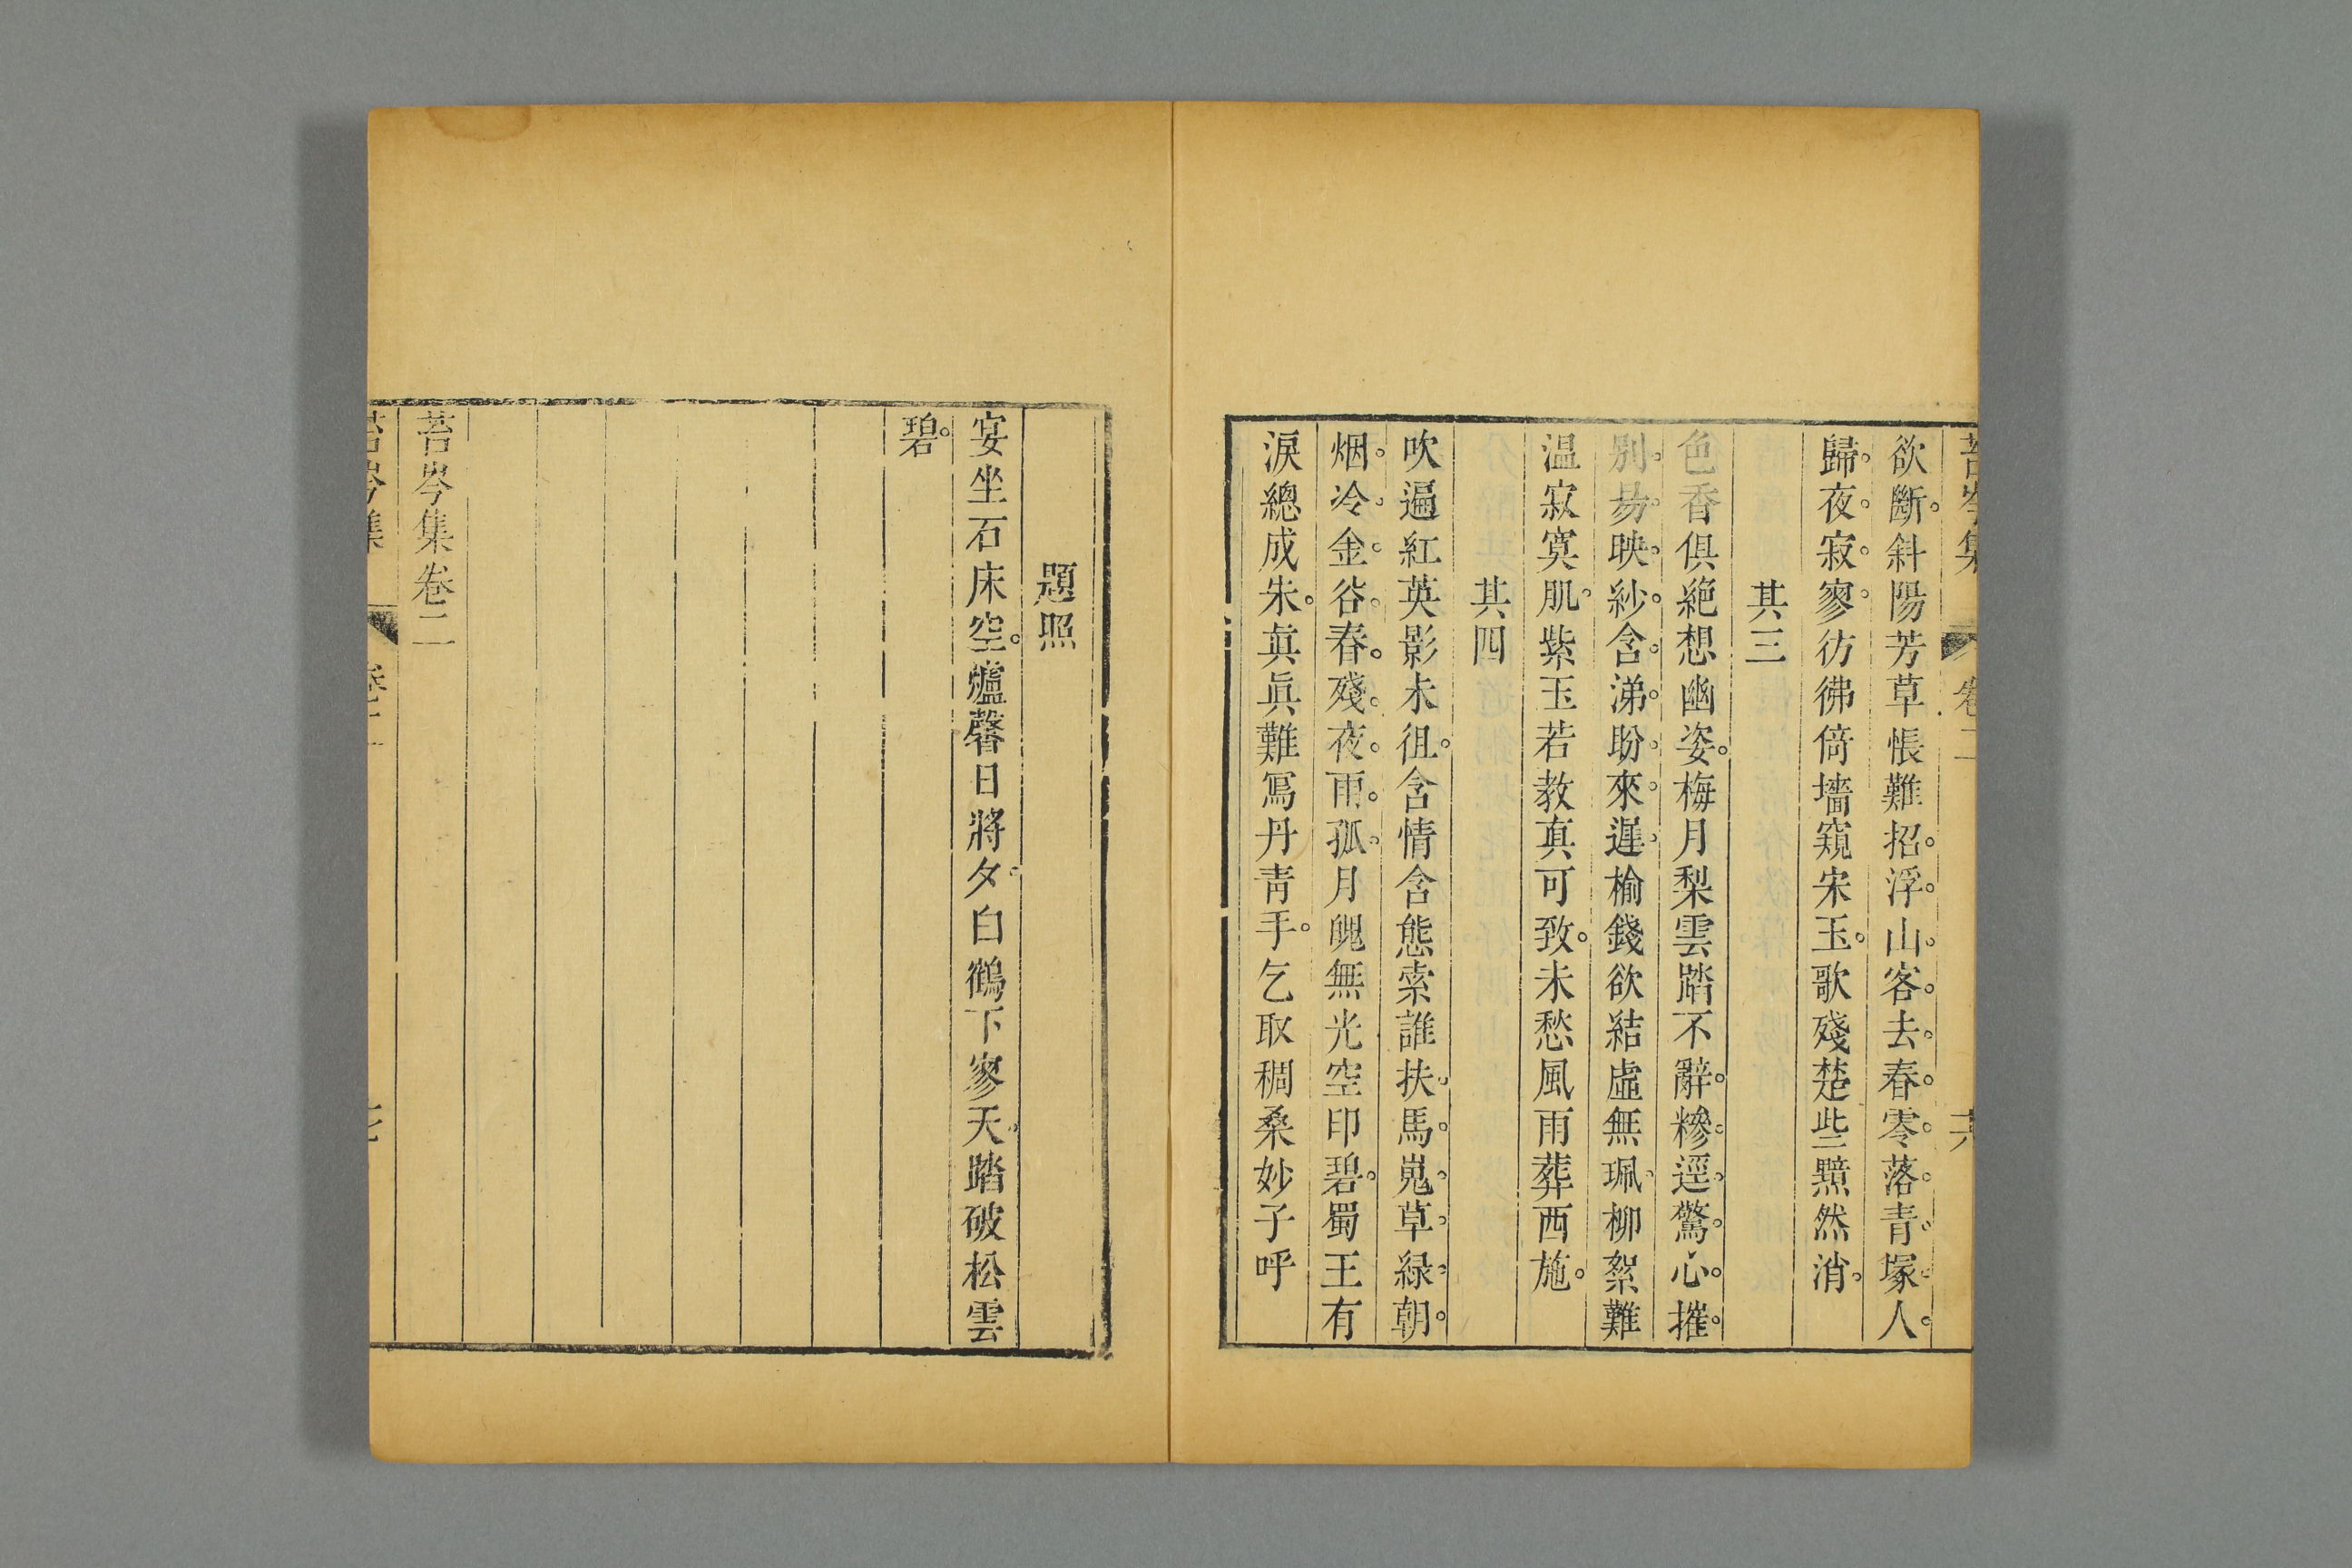 苔岑集 卷二 六
欲斷斜陽芳草悵難招浮山客去春零落青塚人
歸夜寂寥彷彿倚墻窺宋玉歌殘楚些黯然消
其三
色香俱絶想幽姿梅月梨雲踏不辭糝逕驚心摧
別易映紗含涕盼來遲榆錢欲結虛無珮柳絮難
温寂寞肌紫玉若教真可致未愁風雨葬西施
其四
吹遍紅英影未徂含情含態索誰扶馬嵬草緑朝
烟冷金谷春殘夜雨孤月魄無光空印碧蜀王有
淚總成朱眞眞難寫丹青手乞取稠桑妙子呼
題照
宴坐石床空爐馨日將夕白鶴下寥天踏破松雲
碧
苔岑集卷二
苔岑集 卷二